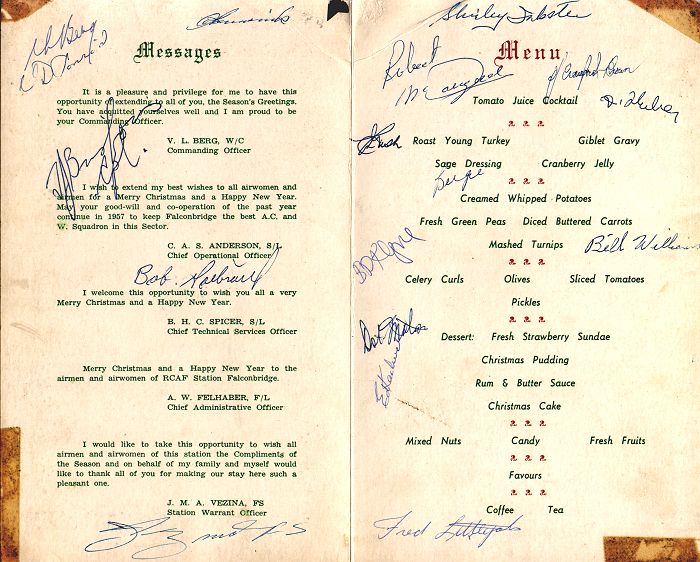 Messages
It is a pleasure and privilege for me to have this
opportunity of extending to all of you, the Season's Greetings.
You have acquitted yourselves well and I am proud to be
your Commanding Officer.
V. L. BERG, W/C
Commanding Officer
I wish to extend my best wishes to all airwomen and
airmen for a Merry Christmas and a Happy New Year.
May your good-will and co-operation of the past year
continue in 1957 to keep Falconbridge the best A.C. and
W. Squadron in this Sector.
C. A. S. ANDERSON, S/L
Chief Operational Officer
Bob
I welcome this opportunity to wish you all a very
Merry Christmas and a Happy New Year.
B. H. C. SPICER, S/L
Chief Technical Services Officer
Merry Christmas and a Happy New Year to the
airmen and airwomen of RCAF Station Falconbridge.
A. W. FELHABER, F/L
Chief Administrative Officer
I would like to take this opportunity to wish all
airmen and airwomen of this station the Compliments
of the Season and on behalf of my family and myself would
like to thank all of you for making our stay here such a
pleasant one.
J. M. A. VEZINA, FS
Station Warrant Officer
Shirley
Menu
Robert
Tomato Juice Cocktail
Roast Young Turkey Giblet Gravy
Sage Dressing Cranberry Jelly
Creamed Whipped Potatoes
Fresh Green Peas Diced Buttered Carrots
Mashed Turnips
Bill Williams
Celery Curls Olives Sliced Tomatoes
Pickles
Dessert: Fresh Strawberry Sundae
Christmas Pudding
Rum & Butter Sauce
Christmas Cake
Mixed Nuts Candy Fresh Fruits
Favours
Coffee Tea
Fred